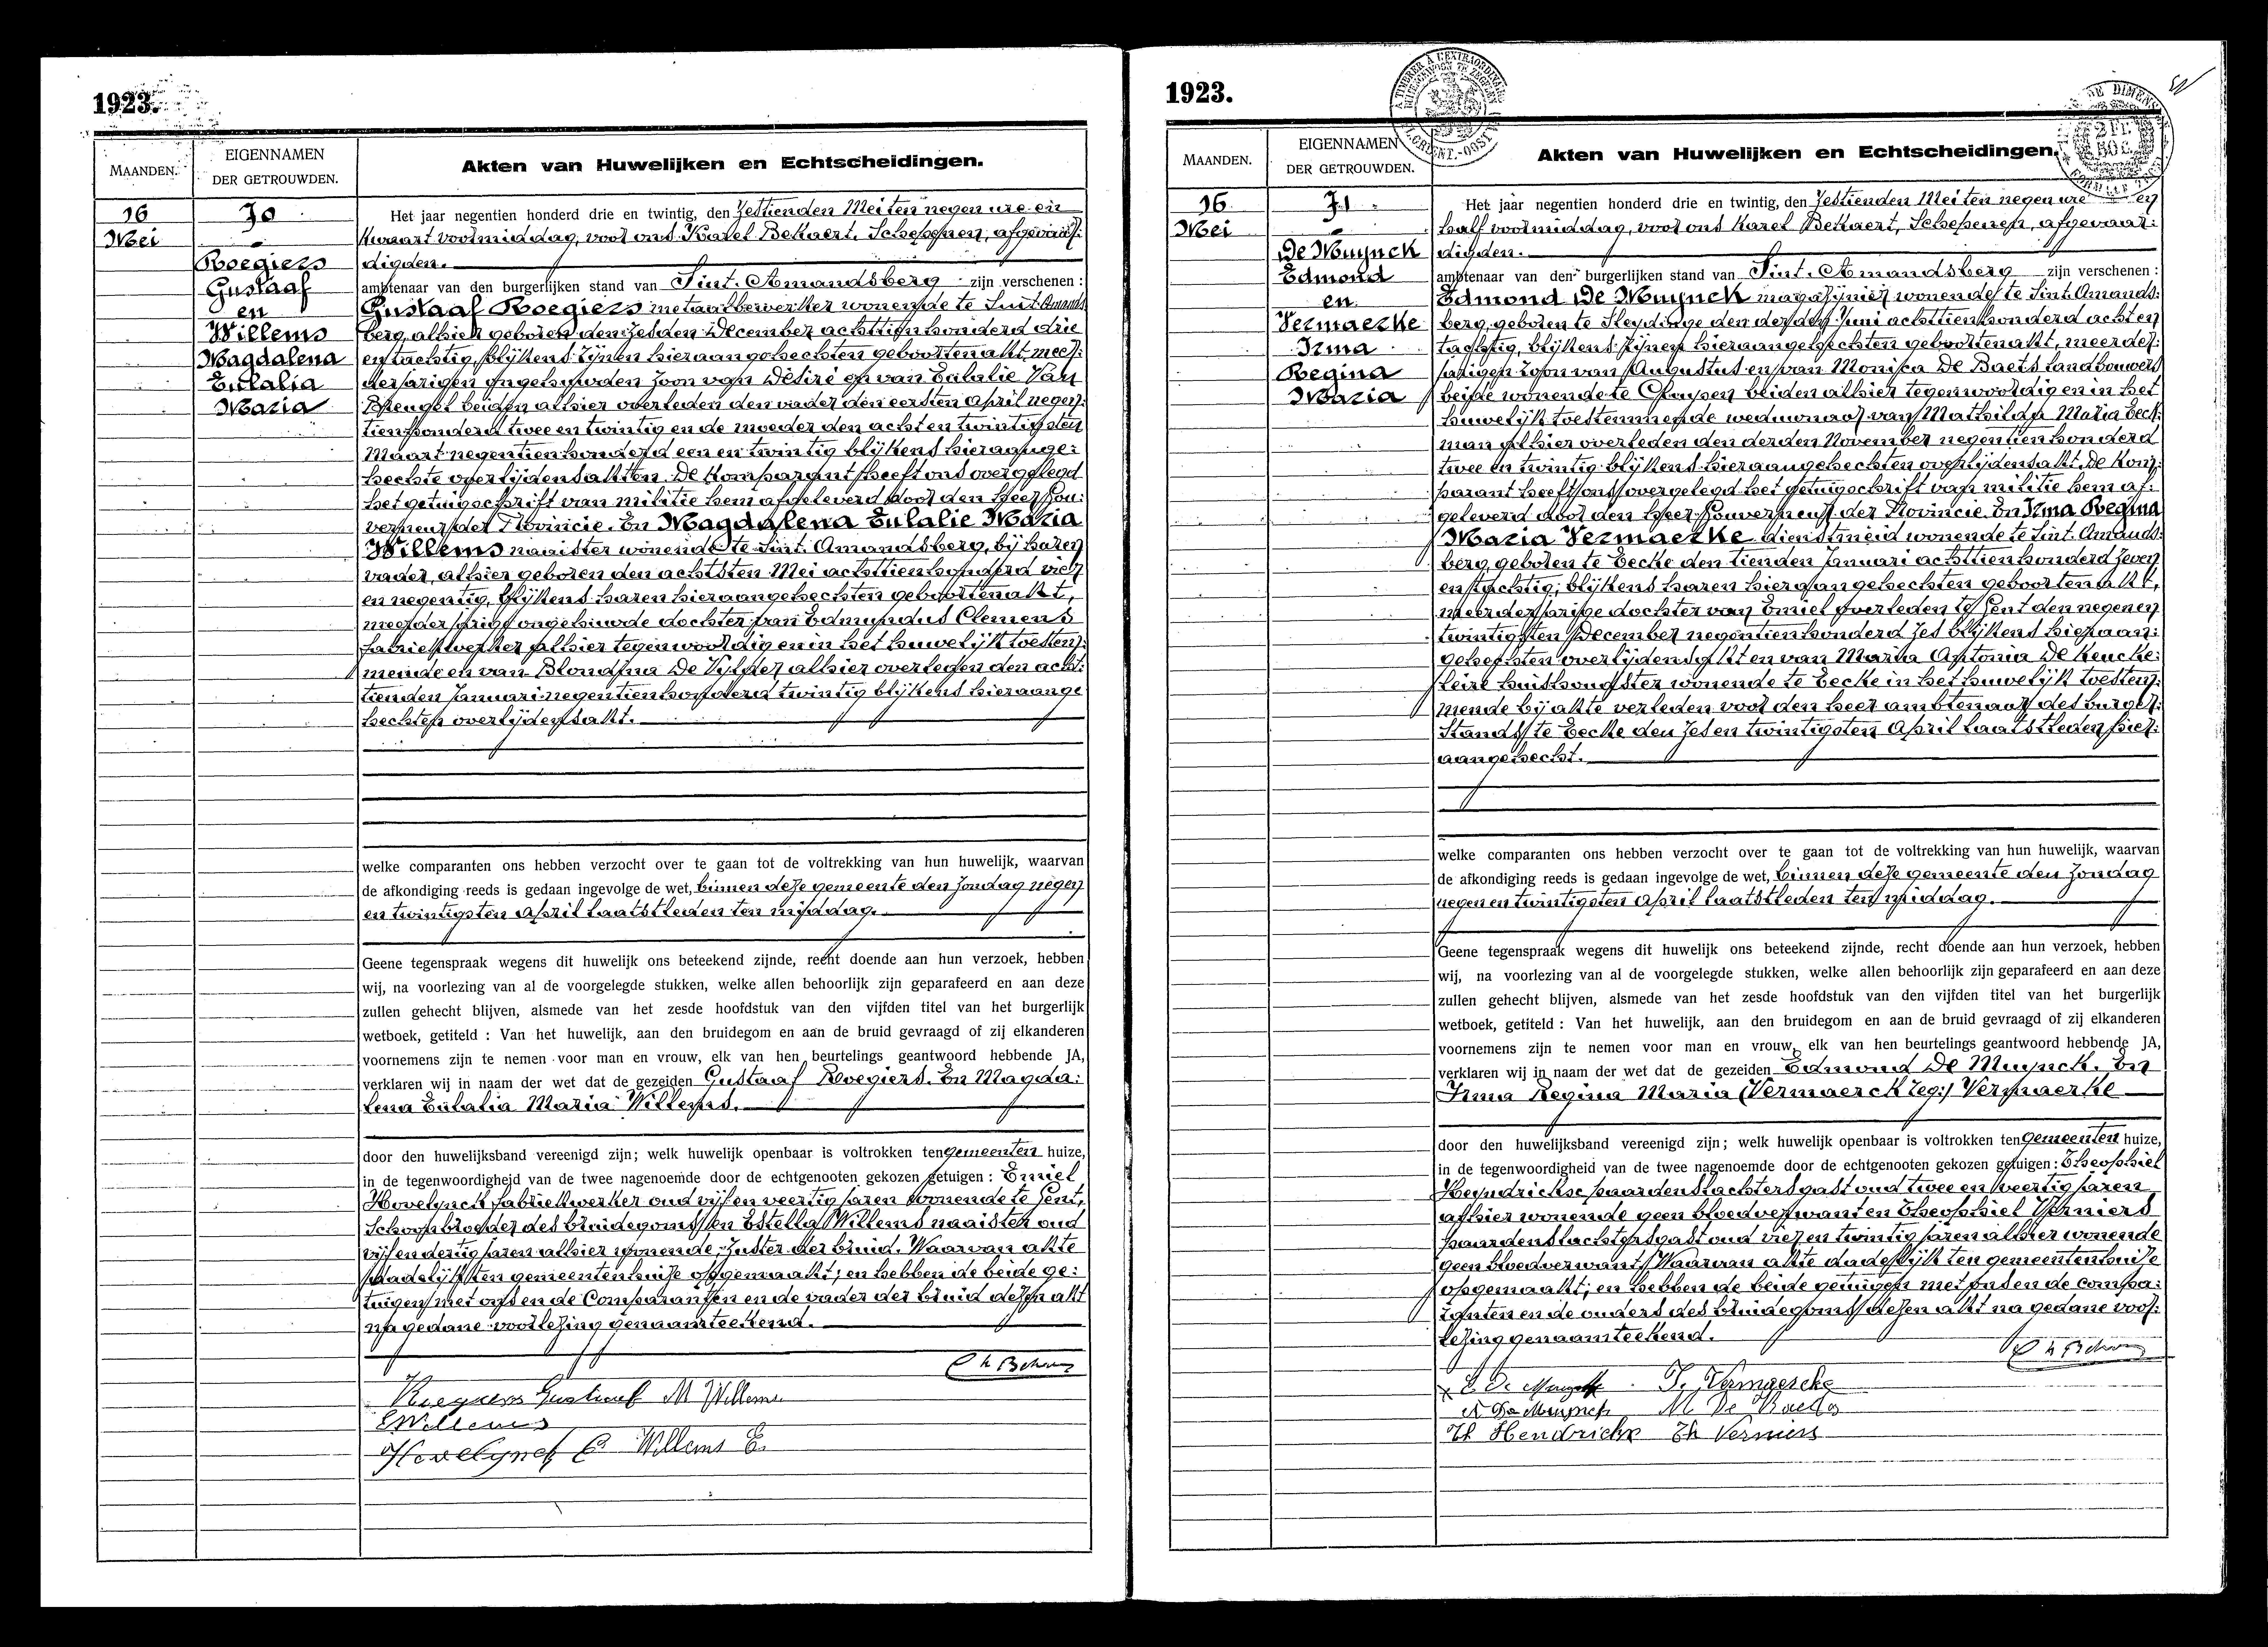 1923.
MAANDEN.
EIGENNAMEN
DER GETROUWDEN.
Akten van Huwelijken en Echtscheidingen.
16
Mei
70
Roegiers
Gustaaf
en
Willems
Magdalena
Eulalia
Maria
Het jaar negentien honderd drie en twintig, den Zestienden Mei ten negen ure en
kwaart voormiddag, voor ons Karel Bekaert, Schepenen, afgevaar:
digden.
ambtenaar van den burgerlijken stand van Sint-Amandsberg zijn verschenen :
Gustaaf Roegiers metaalbewerker wonende te Sint-Amands
berg, alhier geboren den zesden December achttien honderd drie
en tachtig, blijkens zijnen hieraangehechten geboortenakt, meer:
derjarigen ongehuwden zoon van Désiré en van Eulalie Van
Hengel beiden alhier overleden den vader den eersten April negen:
tienhonderd twee en twintig en de moeder den acht en twintigsten
Maart negentien honderd een en twintig blijkens hieraange:
hechte overlijdensakten. De Komparant heeft ons overgelegd
het getuigschrift van militie hem afgeleverd door den Heer Gou:
verneur der Provincie. En Magdalena Eulalie Maria
Willems naaister wonende te Sint-Amandsberg, bij haren
vader, alhier geboren den achtsten Mei achttienhonderd vier
en negentig, blijkens haren hieraangehechten geboortenakt,
meerderjarige ongehuwde dochter van Edmundus Clemens
fabriekwerker alhier tegenwoordig en in het huwelijk toestem:
mende en van Blondina De Vylder alhier overleden den acht:
tienden Januari negentienhonderd twintig blijkens hieraange
hechten overlijdensakt.
welke comparanten ons hebben verzocht over te gaan tot de voltrekking van hun huwelijk, waarvan
de afkondiging reeds is gedaan ingevolge de wet, binnen deze gemeente den Zondag negen
en twintigsten April laatstleden ten middag.
Geene tegenspraak wegens dit huwelijk ons beteekend zijnde, recht doende aan hun verzoek, hebben
wij, na voorlezing van al de voorgelegde stukken, welke allen behoorlijk zijn geparafeerd en aan deze
zullen gehecht blijven, alsmede van het zesde hoofdstuk van den vijfden titel van het burgerlijk
wetboek, getiteld : Van het huwelijk, aan den bruidegom en aan de bruid gevraagd of zij elkanderen
voornemens zijn te nemen voor man en vrouw, elk van hen beurtelings geantwoord hebbende JA,
verklaren wij in naam der wet dat de gezeiden Gustaaf Roegiers. En Magda:
lena Eulalia Maria Willems.
door den huwelijksband vereenigd zijn; welk huwelijk openbaar is voltrokken ten gemeenten huize,
in de tegenwoordigheid van de twee nagenoemde door de echtgenooten gekozen getuigen : Emiel
Hovelynck fabriekwerker oud vijf en veertig jaren wonende te Gent,
Schoonbroeder des bruidegoms en Estella Willems naaister oud
vijf en dertig jaren alhier wonende, Zuster der bruid. Waarvan akte
dadelijk ten gemeentenhuize opgemaakt; en hebben de beide ge:
tuigen met ons en de Comparanten en de vader der bruid dezen akt
na gedane voorlezing genaamteekend.
Roegiers Gustaaf M Willems
E Willems
Hovelynck E Willems E.
1923.
MAANDEN.
EIGENNAMEN
DER GETROUWDEN.
Akten van Huwelijken en Echtscheidingen.
16
Mei
71
De Muynck
Edmond
en
Vermaerke
Irma
Regina
Maria
Het jaar negentien honderd drie en twintig, den Zestienden Mei ten negen ure en
half voormiddag, voor ons Karel Bekaert, Schepenen, afgevaar:
digden.
ambtenaar van den burgerlijken stand van Sint-Amandsberg zijn verschenen :
Edmond De Muynck magazijnier wonende te Sint-Amands:
berg, geboren te Sleydinge den derden Juni achttienhonderd acht en
tachtig, blijkens zijnen hieraangehechten geboortenakt, meerder:
jarigen zoon van Augustus en van Monica De Baets landbouwers
beide wonende te Cluysen beiden alhier tegenwoordig en in het
huwelijk toestemmende weduwnaar van Mathilda Maria Beek:
man alhier overleden den derden November negentienhonderd
twee en twintig blijkens hieraangehechten overlijdensakt. De Kom:
parant heeft ons overgelegd het getuigschrift van militie hem af:
geleverd door den Heer Gouverneur der Provincie. En Irma Regina
Maria Vermaerke dienstmeid wonende te Sint-Amands:
berg, geboren te Eecke den tienden Januari achttienhonderd zeven
en tachtig, blijkens haren hieraangehechten geboortenakt,
meerderjarige dochter van Emiel overleden te Gent den negenen
twintigsten December negentienhonderd zes blijkens hieraan:
gehechten overlijdensakt en van Maria Antonia De Keucke:
leire huishoudster wonende te Eecke in het huwelijk toestem:
mende bij akte verleden voor den heer ambtenaar des burger:
Stands te Eecke den zes en twintigsten April laatstleden hier:
aangehecht.
welke comparanten ons hebben verzocht over te gaan tot de voltrekking van hun huwelijk, waarvan
de afkondiging reeds is gedaan ingevolge de wet, binnen deze gemeente den Zondag
negen en twintigsten April laatstleden ten middag.
Geene tegenspraak wegens dit huwelijk ons beteekend zijnde, recht doende aan hun verzoek, hebben
wij, na voorlezing van al de voorgelegde stukken, welke allen behoorlijk zijn geparafeerd en aan deze
zullen gehecht blijven, alsmede van het zesde hoofdstuk van den vijfden titel van het burgerlijk
wetboek, getiteld : Van het huwelijk, aan den bruidegom en aan de bruid gevraagd of zij elkanderen
voornemens zijn te nemen voor man en vrouw, elk van hen beurtelings geantwoord hebbende JA,
verklaren wij in naam der wet dat de gezeiden Edmond De Muynck. En
Irma Regina Maria (Vermaerck zeg:) Vermaerke
door den huwelijksband vereenigd zijn; welk huwelijk openbaar is voltrokken ten gemeenten huize,
in de tegenwoordigheid van de twee nagenoemde door de echtgenooten gekozen getuigen : Theophiel
Heyndrickse paardenslachtersgast oud twee en veertig jaren
alhier wonende geen bloedverwant en Theophiel Verniers
paardenslachtersgast oud vier en twintig jaren alhier wonende
geen bloedverwant. Waarvan akte dadelijk ten gemeentenhuize
opgemaakt; en hebben de beide getuigen met ons en de compa:
ranten en de ouders des bruidegoms dezen akt na gedane voor:
lezing genaamteekend.
E De Muynck I. Vermaercke
A De Muynck M De Baets
Th Hendrickx Th Verniers